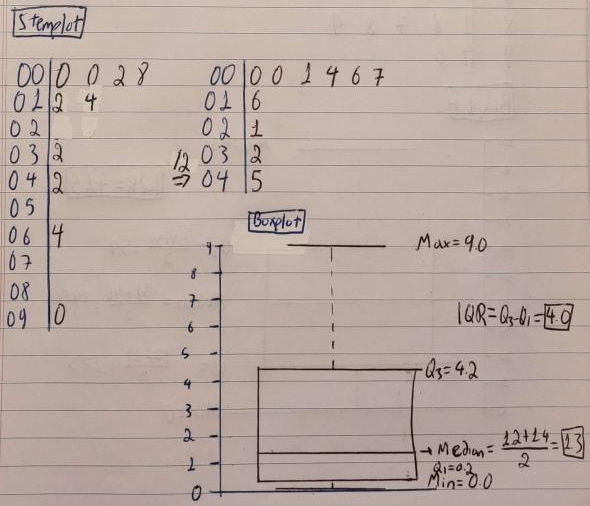 Stemplot
00 | 0 0 2 8
01 | 2 4
02 |
03 | 2
04 | 2
05 |
06 | 4
07 |
08 |
09 | 0
00 | 0 0 1 4 6 7
01 | 6
02 | 1
03 | 2
04 | 5
12
⇒
Boxplot
9
8
7
6
5
4
3
2
1
0
Max=9.0
IQR=Q3-Q1=4.0
Q3=4.2
→ Median= 12+14 / 2 = 13
Q1=0.2
Min=0.0